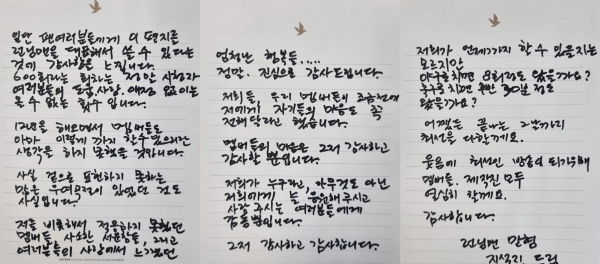 일단 팬여러분들에게 이 편지를
런닝맨을 대표해서 쓸 수 있다는
것에 감사함을 느낍니다.
600회라는 회차는 정말 시청자
여러분들의 도움, 사랑, 애정 없이는
올 수 없는 횟수입니다.
12년을 해오면서 멤버들도
아마 이렇게 까지 할 수 있으리란
생각을 하지 못했을 것입니다.
사실 겉으로 표현하지 못하는
많은 우여곡절이 있었던 것도
사실입니다.
저를 비롯해서 적응하지 못했던
멤버들, 사소한 서운함들, 그리고
여러분들의 사랑에서 느꼈던
엄청난 행복들.....
정말. 진심으로 감사드립니다.
저희들, 우리 멤버들이 조금전에
저에게 자기들의 마음도 꼭
전해달라고 했습니다.
멤버들의 마음은 그저 감사하고
감사할 뿐입니다.
저희가 누구라고, 아무것도 아닌
저희에게 늘 응원해 주시고
사랑 주시는 여러분들에게
감동뿐입니다.
그저 감사하고 감사합니다.
저희가 언제까지 할 수 있을지는
모르지만
야구로 치면 8회정도 왔을까요?
축구로 치면 후반 30분 정도
왔을까요?
어쨌든 끝나는 그날까지
최선을 다할게요.
웃음에 최선인 방송이 되기위해
멤버들. 제작진 모두
열심히 할게요.
감사합니다.
런닝맨 맏형
지석진 드림